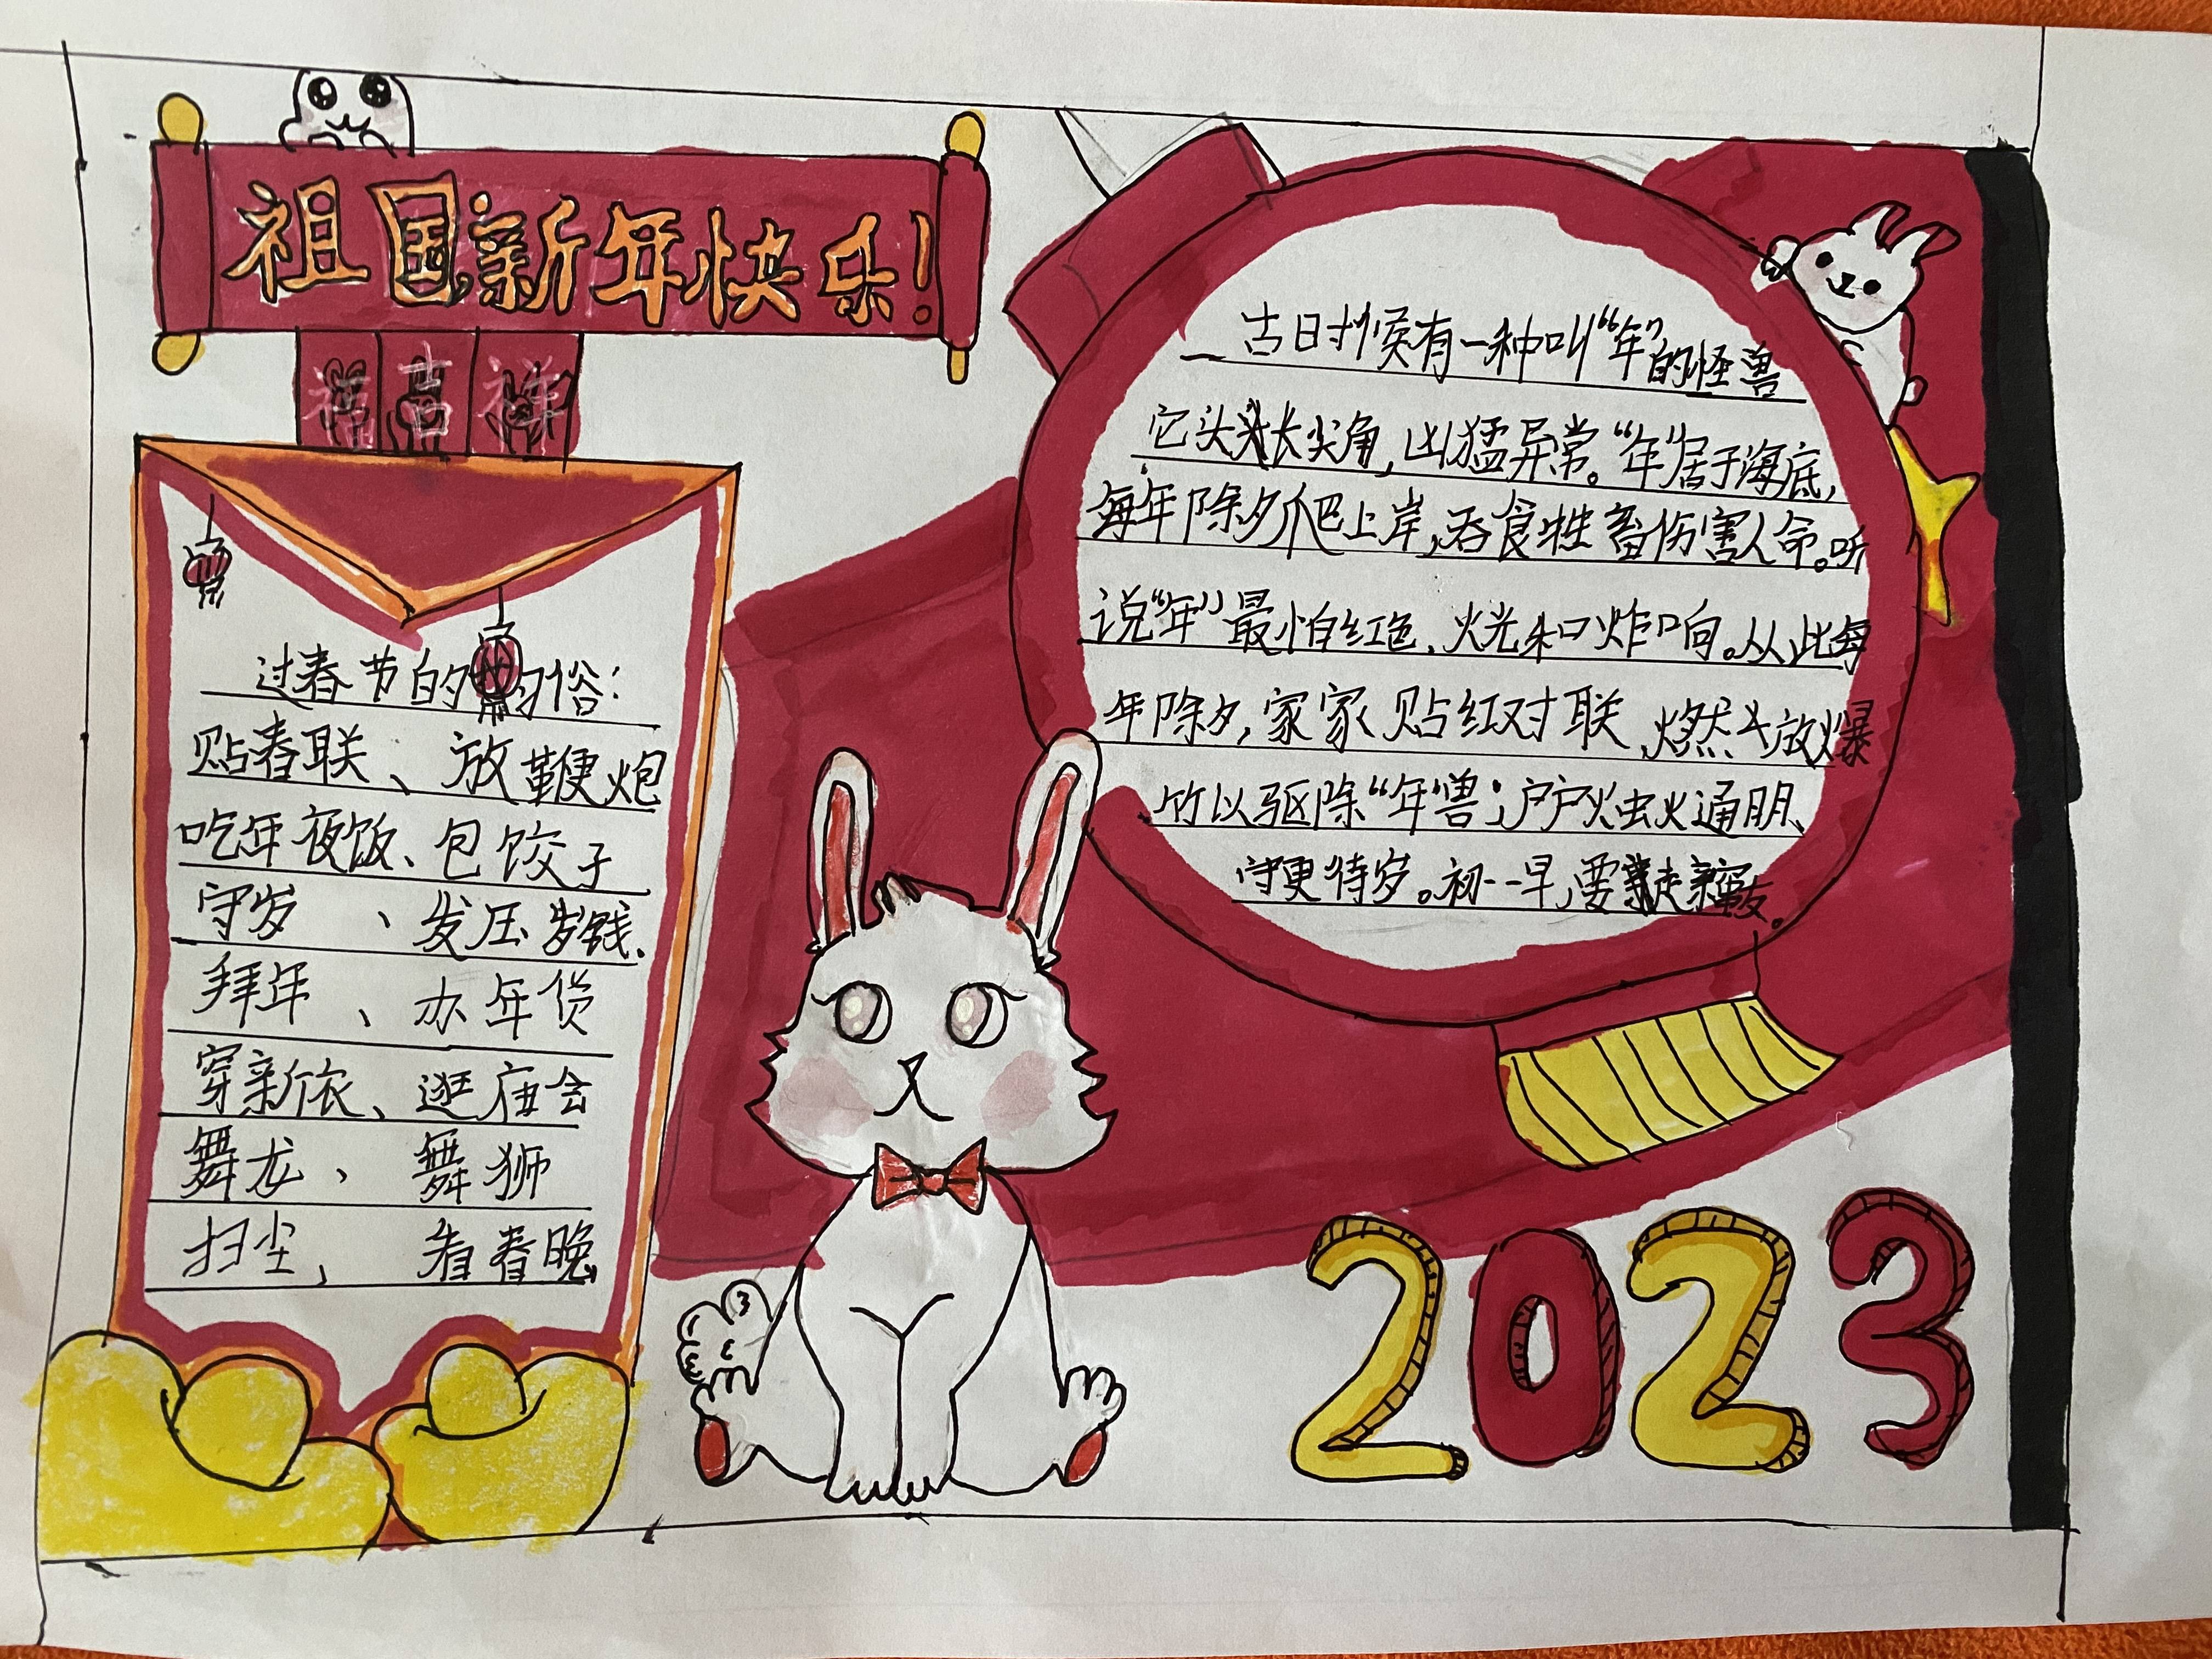 祖国,新年快乐!
福吉祥
过春节的习俗:
贴春联、放鞭炮
吃年夜饭、包饺子
守岁、发压岁钱、
拜年、办年货
穿新衣、逛庙会
舞龙、舞狮
扫尘、看春晚
古时候有一种叫“年”的怪兽
它头长尖角,凶猛异常。“年”居于海底,
每年除夕爬上岸,吞食牲畜伤害人命。听
说“年”最怕红色、火光和炸响。从此每
年除夕,家家贴红对联、燃放爆
竹以驱除“年”兽;户户烛火通明、
守更待岁。初一一早,要走亲友。
2023